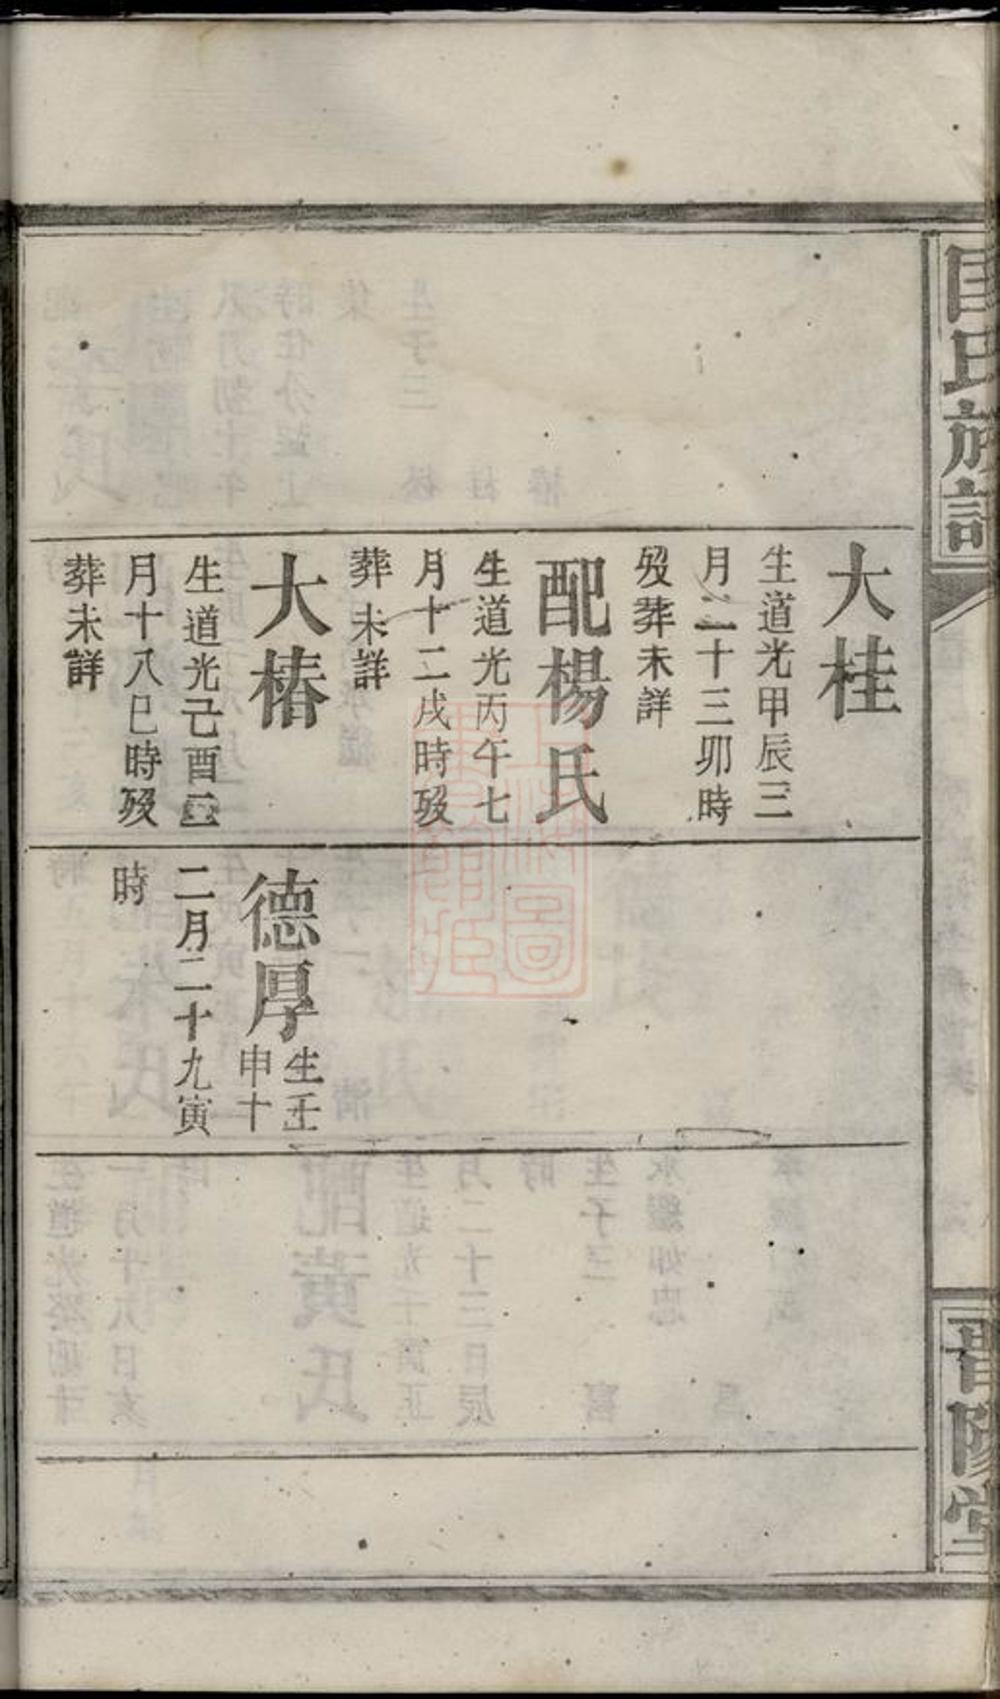 氏族譜
大桂
生道光甲辰三
月二十三卯時
歿葬未詳
配楊氏
生道光丙午七
月十二戌時歿
葬未詳
大椿
生道光己酉三
月十八巳時歿
葬未詳
德厚
生壬
申十
二月二十九寅
時
晋陽堂